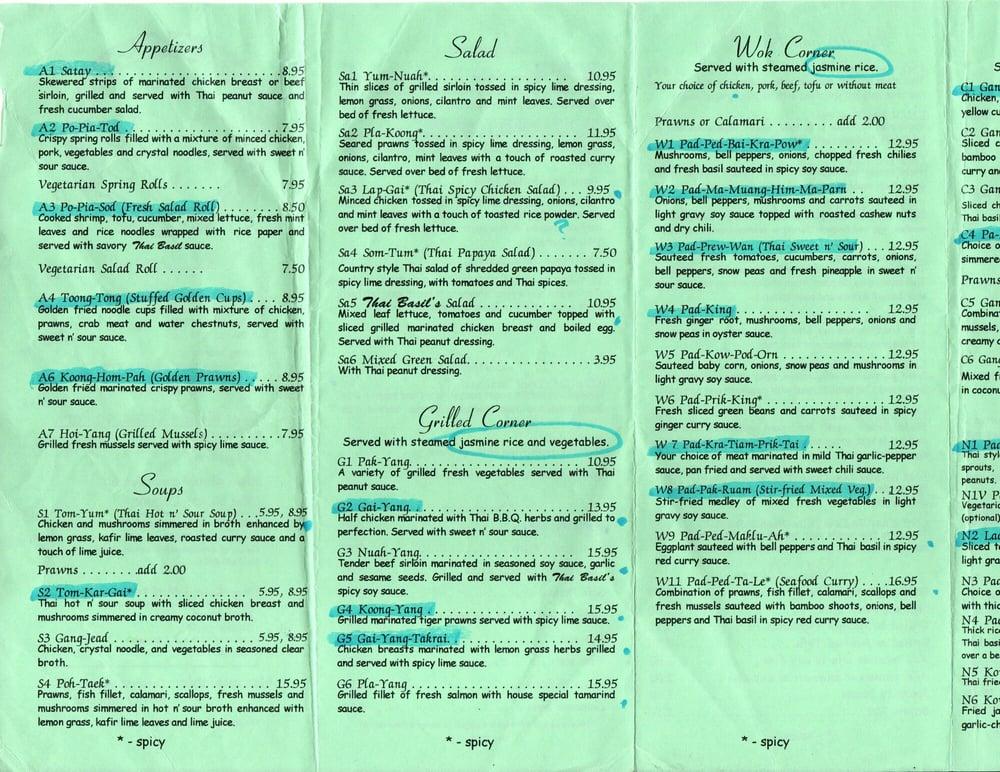 Appetizers
A1 Satay . . . . . . . . . . . . . . . . . . . . . . . 8.95
Skewered strips of marinated chicken breast or beef
sirloin, grilled and served with Thai peanut sauce and
fresh cucumber salad.
A2 Po-Pia-Tod . . . . . . . . . . . . . . . . . . . 7.95
Crispy spring rolls filled with a mixture of minced chicken,
pork, vegetables and crystal noodles, served with sweet n'
sour sauce.
Vegetarian Spring Rolls . . . . . . . 7.95
A3 Po-Pia-Sod (Fresh Salad Roll) . . . . . . . . 8.50
Cooked shrimp, tofu, cucumber, mixed lettuce, fresh mint
leaves and rice noodles wrapped with rice paper and
served with savory Thai Basil sauce.
Vegetarian Salad Roll . . . . . . 7.50
A4 Toong-Tong (Stuffed Golden Cups) . . . . 8.95
Golden fried noodle cups filled with mixture of chicken,
prawns, crab meat and water chestnuts, served with
sweet n' sour sauce.
A6 Koong-Hom-Pah (Golden Prawns) . . . . . 8.95
Golden fried marinated crispy prawns, served with sweet
n' sour sauce.
A7 Hoi-Yang (Grilled Mussels) . . . . . . . . . . 7.95
Grilled fresh mussels served with spicy lime sauce.
Soups
S1 Tom-Yum* (Thai Hot n' Sour Soup) . . . 5.95, 8.95
Chicken and mushrooms simmered in broth enhanced by
lemon grass, kafir lime leaves, roasted curry sauce and a
touch of lime juice.
Prawns . . . . . . . . add 2.00
S2 Tom-Kar-Gai* . . . . . . . . . . . . . . . . 5.95, 8.95
Thai hot n' sour soup with sliced chicken breast and
mushrooms simmered in creamy coconut broth.
S3 Gang-Jead . . . . . . . . . . . . . . . . . . . 5.95, 8.95
Chicken, crystal noodle, and vegetables in seasoned clear
broth.
S4 Poh-Taek* . . . . . . . . . . . . . . . . . . . . . 15.95
Prawns, fish fillet, calamari, scallops, fresh mussels and
mushrooms simmered in hot n' sour broth enhanced with
lemon grass, kafir lime leaves and lime juice.
* - spicy
Salad
Sa1 Yum-Nuah* . . . . . . . . . . . . . . . . . . . . 10.95
Thin slices of grilled sirloin tossed in spicy lime dressing,
lemon grass, onions, cilantro and mint leaves. Served over
bed of fresh lettuce.
Sa2 Pla-Koong* . . . . . . . . . . . . . . . . . . . . 11.95
Seared prawns tossed in spicy lime dressing, lemon grass,
onions, cilantro, mint leaves with a touch of roasted curry
sauce. Served over bed of fresh lettuce.
Sa3 Lap-Gai* (Thai Spicy Chicken Salad) . . . 9.95
Minced chicken tossed in spicy lime dressing, onions, cilantro
and mint leaves with a touch of toasted rice powder. Served
over bed of fresh lettuce.
?
Sa4 Som-Tum* (Thai Papaya Salad) . . . . . . . 7.50
Country style Thai salad of shredded green papaya tossed in
spicy lime dressing, with tomatoes and Thai spices.
Sa5 Thai Basil's Salad . . . . . . . . . . . . . . . . 10.95
Mixed leaf lettuce, tomatoes and cucumber topped with
sliced grilled marinated chicken breast and boiled egg.
Served with Thai peanut dressing.
Sa6 Mixed Green Salad . . . . . . . . . . . . . . . . 3.95
With Thai peanut dressing.
Grilled Corner
Served with steamed jasmine rice and vegetables.
G1 Pak-Yang . . . . . . . . . . . . . . . . . . . . . . 10.95
A variety of grilled fresh vegetables served with Thai
peanut sauce.
G2 Gai-Yang . . . . . . . . . . . . . . . . . . . . . . 13.95
Half chicken marinated with Thai B.B.Q. herbs and grilled to
perfection. Served with sweet n' sour sauce.
G3 Nuah-Yang . . . . . . . . . . . . . . . . . . . . . 15.95
Tender beef sirloin marinated in seasoned soy sauce, garlic
and sesame seeds. Grilled and served with Thai Basil's
spicy soy sauce.
G4 Koong-Yang . . . . . . . . . . . . . . . . . . . . 15.95
Grilled marinated tiger prawns served with spicy lime sauce.
G5 Gai-Yang-Takrai . . . . . . . . . . . . . . . . . 14.95
Chicken breasts marinated with lemon grass herbs grilled
and served with spicy lime sauce.
G6 Pla-Yang . . . . . . . . . . . . . . . . . . . . . . 15.95
Grilled fillet of fresh salmon with house special tamarind
sauce.
* - spicy
Wok Corner
Served with steamed jasmine rice.
Your choice of chicken, pork, beef, tofu or without meat
Prawns or Calamari . . . . . . . . . add 2.00
W1 Pad-Ped-Bai-Kra-Pow* . . . . . . . . . . . . 12.95
Mushrooms, bell peppers, onions, chopped fresh chilies
and fresh basil sauteed in spicy soy sauce.
W2 Pad-Ma-Muang-Him-Ma-Parn . . . . . . 12.95
Onions, bell peppers, mushrooms and carrots sauteed in
light gravy soy sauce topped with roasted cashew nuts
and dry chili.
W3 Pad-Prew-Wan (Thai Sweet n' Sour) . . . 12.95
Sauteed fresh tomatoes, cucumbers, carrots, onions,
bell peppers, snow peas and fresh pineapple in sweet n'
sour sauce.
W4 Pad-King . . . . . . . . . . . . . . . . . . . . . 12.95
Fresh ginger root, mushrooms, bell peppers, onions and
snow peas in oyster sauce.
W5 Pad-Kow-Pod-Orn . . . . . . . . . . . . . . . 12.95
Sauteed baby corn, onions, snow peas and mushrooms in
light gravy soy sauce.
W6 Pad-Prik-King* . . . . . . . . . . . . . . . . . . 12.95
Fresh sliced green beans and carrots sauteed in spicy
ginger curry sauce.
W 7 Pad-Kra-Tiam-Prik-Tai . . . . . . . . . . . . 12.95
Your choice of meat marinated in mild Thai garlic-pepper
sauce, pan fried and served with sweet chili sauce.
W8 Pad-Pak-Ruam (Stir-fried Mixed Veg.) . . 12.95
Stir-fried medley of mixed fresh vegetables in light
gravy soy sauce.
W9 Pad-Ped-Maklu-Ah* . . . . . . . . . . . . . . 12.95
Eggplant sauteed with bell peppers and Thai basil in spicy
red curry sauce.
W11 Pad-Ped-Ta-Le* (Seafood Curry) . . . . 16.95
Combination of prawns, fish fillet, calamari, scallops and
fresh mussels sauteed with bamboo shoots, onions, bell
peppers and Thai basil in spicy red curry sauce.
* - spicy
C1
Chicken,
yellow
C2
Sliced
bamboo
curry
C3
Sliced
Thai
C4
Choice
simmered
Prawns
C5
mussels,
creamy
C6
Mixed
in
N1
Thai
sprouts,
peanuts.
N1V
(optional)
N2
Sliced
light
N3
Choice
with
N4
Thick
Thai
over a
N5
Thai
N6
Fried